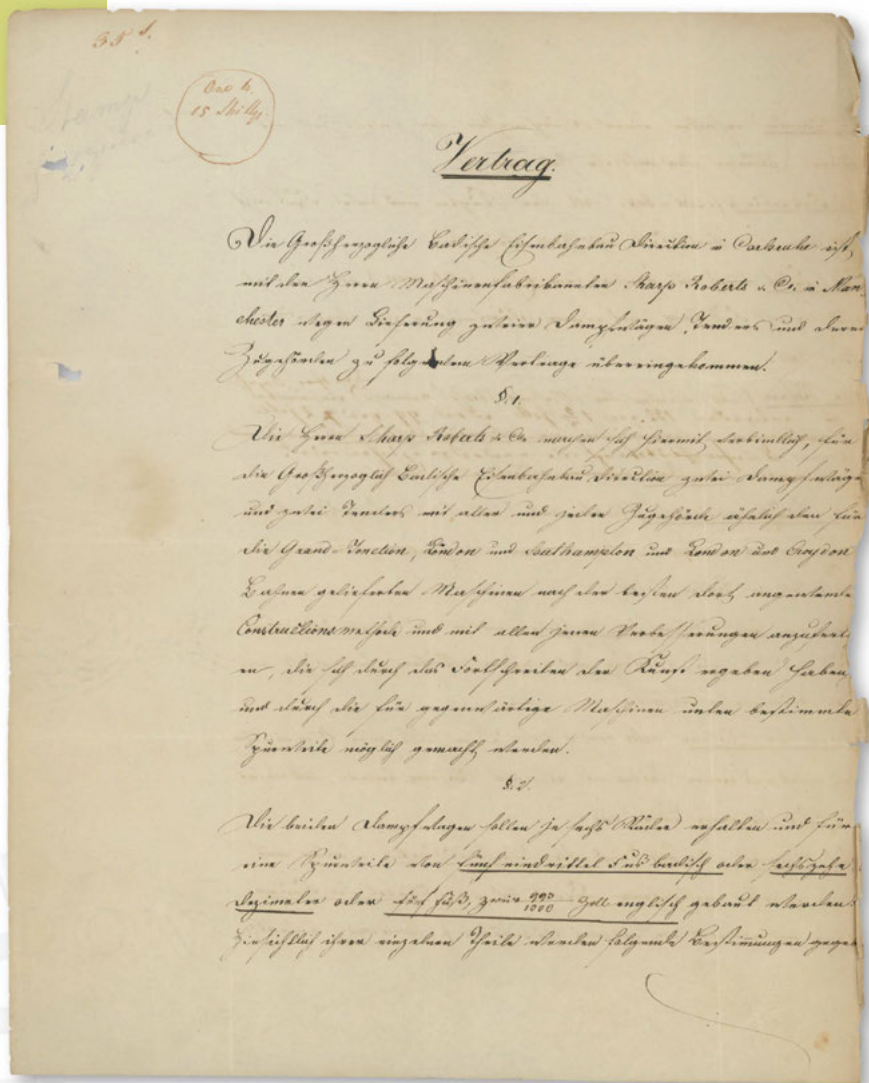 35 s.
One £.
15 Shillgs.
Stamp
Vertrag.
Die Großherzogliche Badische Eisenbahnbau Direction in Carlsruhe ist
mit den Herrn Maschinenfabrikannten Sharp Roberts & Co. in Man-
chester wegen Lieferung zweier Dampfwägen, Tenders und deren
Zugehörden zu folgendem Vertrage übereingekommen.
§. 1.
Die Herrn Sharp Roberts & Co. machen sich hiermit verbindlich, für
die Großherzoglich Badische Eisenbahnbau Direction zwei Dampfwäge
und zwei Tenders mit aller und jeder Zugehörde ähnlich den für
die Grand-Jonction, London und Southampton und London und Croydon
Bahnen gelieferten Maschinen nach der besten dort angewende
Constructionsmethode und mit allen jenen Verbesserungen anzuferti
en, die sich durch das Fortschreiten der Kunst ergeben haben,
und durch die für gegenwärtige Maschinen unten bestimmte
Spurweite möglich gemacht werden.
§. 2.
Die beiden Dampfwagen sollen je sechs Räder erhalten und für
eine Spurweite von fünf eindrittel Fus badisch oder sechszehn
Dezimeter oder fünf Fuß, zwei 993/1000 Zoll englisch gebaut werden.
Hinsichtlich ihrer einzelnen Theile werden folgende Bestimmungen gege